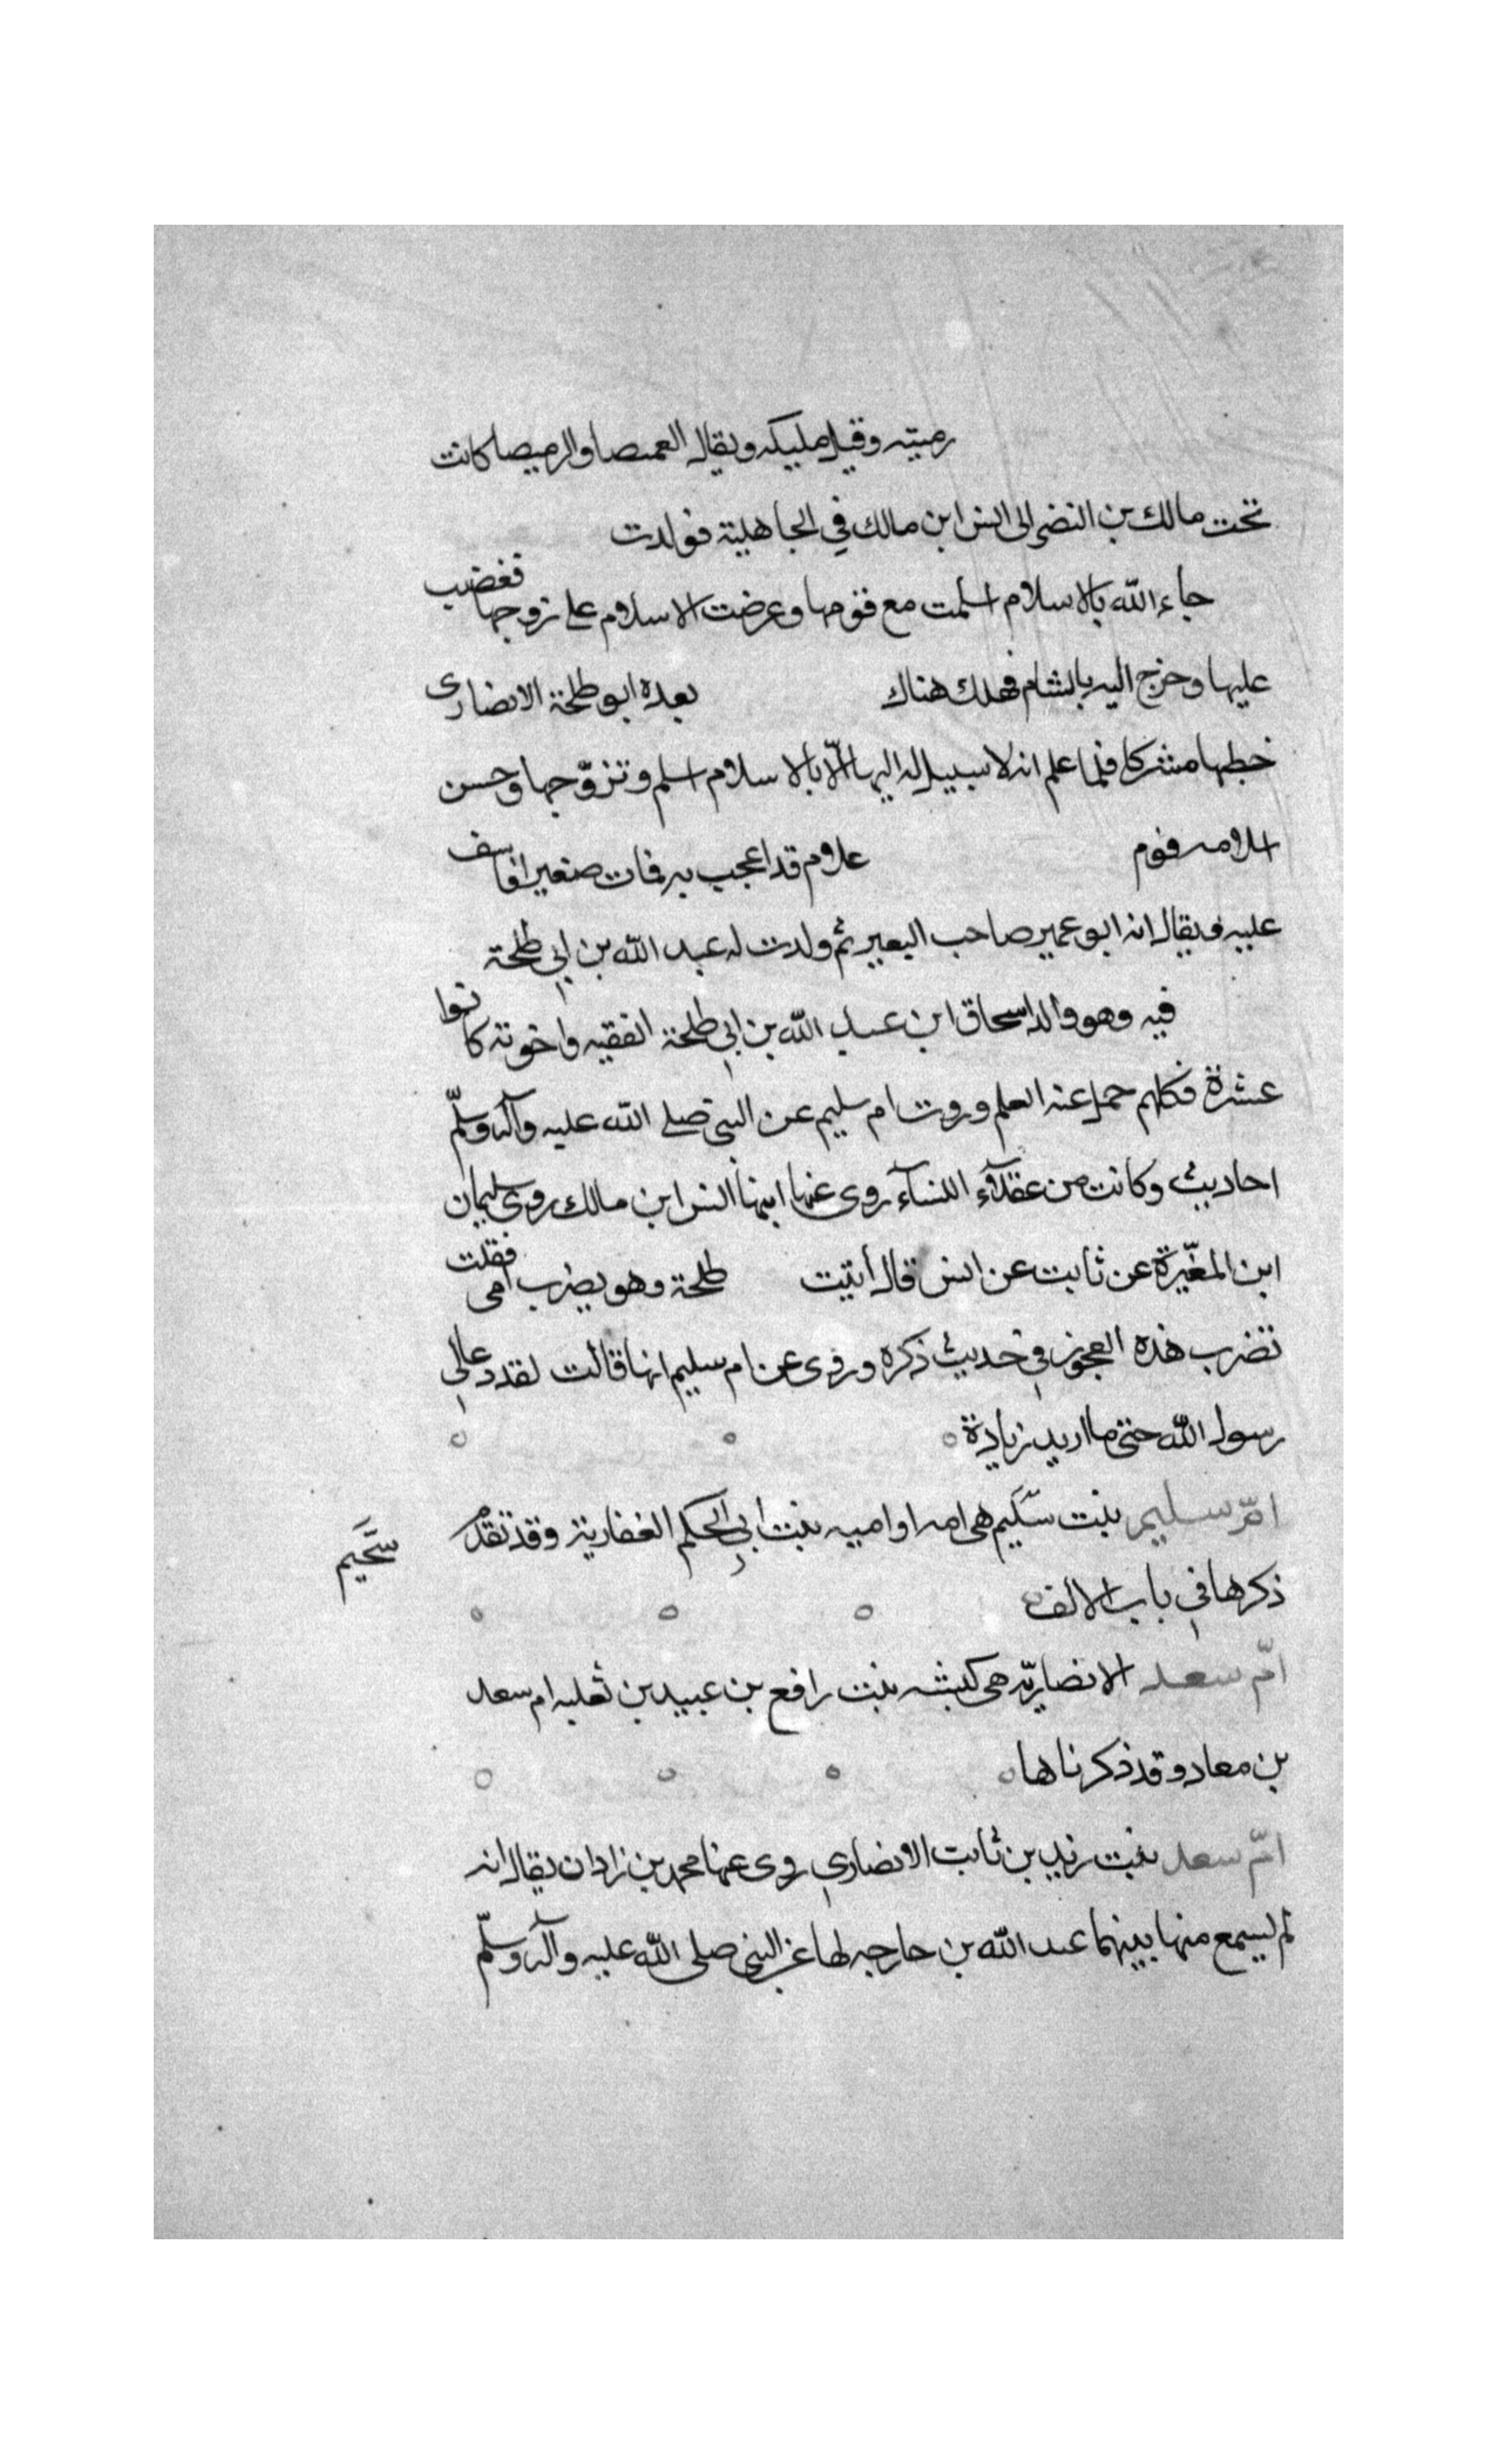 رميته وقيل مليكه ويقال العمصا والرميصا كانت
تحت مالك بن النضر الى انس ابن مالك في الجاهلية فولدت
جاء الله بالاسلام اسلمت مع قومها وعرضت الاسلام على زوجها فغضب
عليها وخرج اليه بالشام فهلك هناك بعده ابو طلحة الانصارى
خطبها مشركا فلما علم انه لا سبيل له اليها الّا بالاسلام اسلم وتزوّجها وحسن
اسلامه فوم علام قد اعجب به فمات صغيرا فاسف
عليه ويقال انه ابو عمير صاحب البعير ثم ولدت له عبد الله بن ابي طلحة
فيه وهو والد اسحاق ابن عبد الله بن ابي طلحة الفقيه واخوته كانوا
عشرة فكلهم حمل عنه العلم وروت ام سليم عن النبي صلى الله عليه وآله وسلّم
احاديث وكانت من عقلآء النسآء روى عنها ابنها انس ابن مالك روى سليمان
ابن المغيّرة عن ثابت عن انس قال أتيت طلحة وهو يضرب امى فقلت
تضرب هذه العجوز في حديث ذكره وروى عن ام سليم انها قالت لقد دعا لي
رسول الله حتى ما اريد زيادة
امّ سليم بنت سّكيم هى امه او اميه بنت ابي الحكم الغفارية وقد تقدم
سّحَيم
ذكرها في باب الالف
امّ سعد الانصاريّه هى كبشه بنت رافع بن عبيد بن ثعلبه ام سعد
بن معاد وقد ذكرناها
امّ سعد بنت زيد بن ثابت الانصاري روى عنها محمد بن زادان يقال انه
لم يسمع منها بينهما عبد الله بن حارجه لها عن النبي صلى الله عليه وآله وسلّم